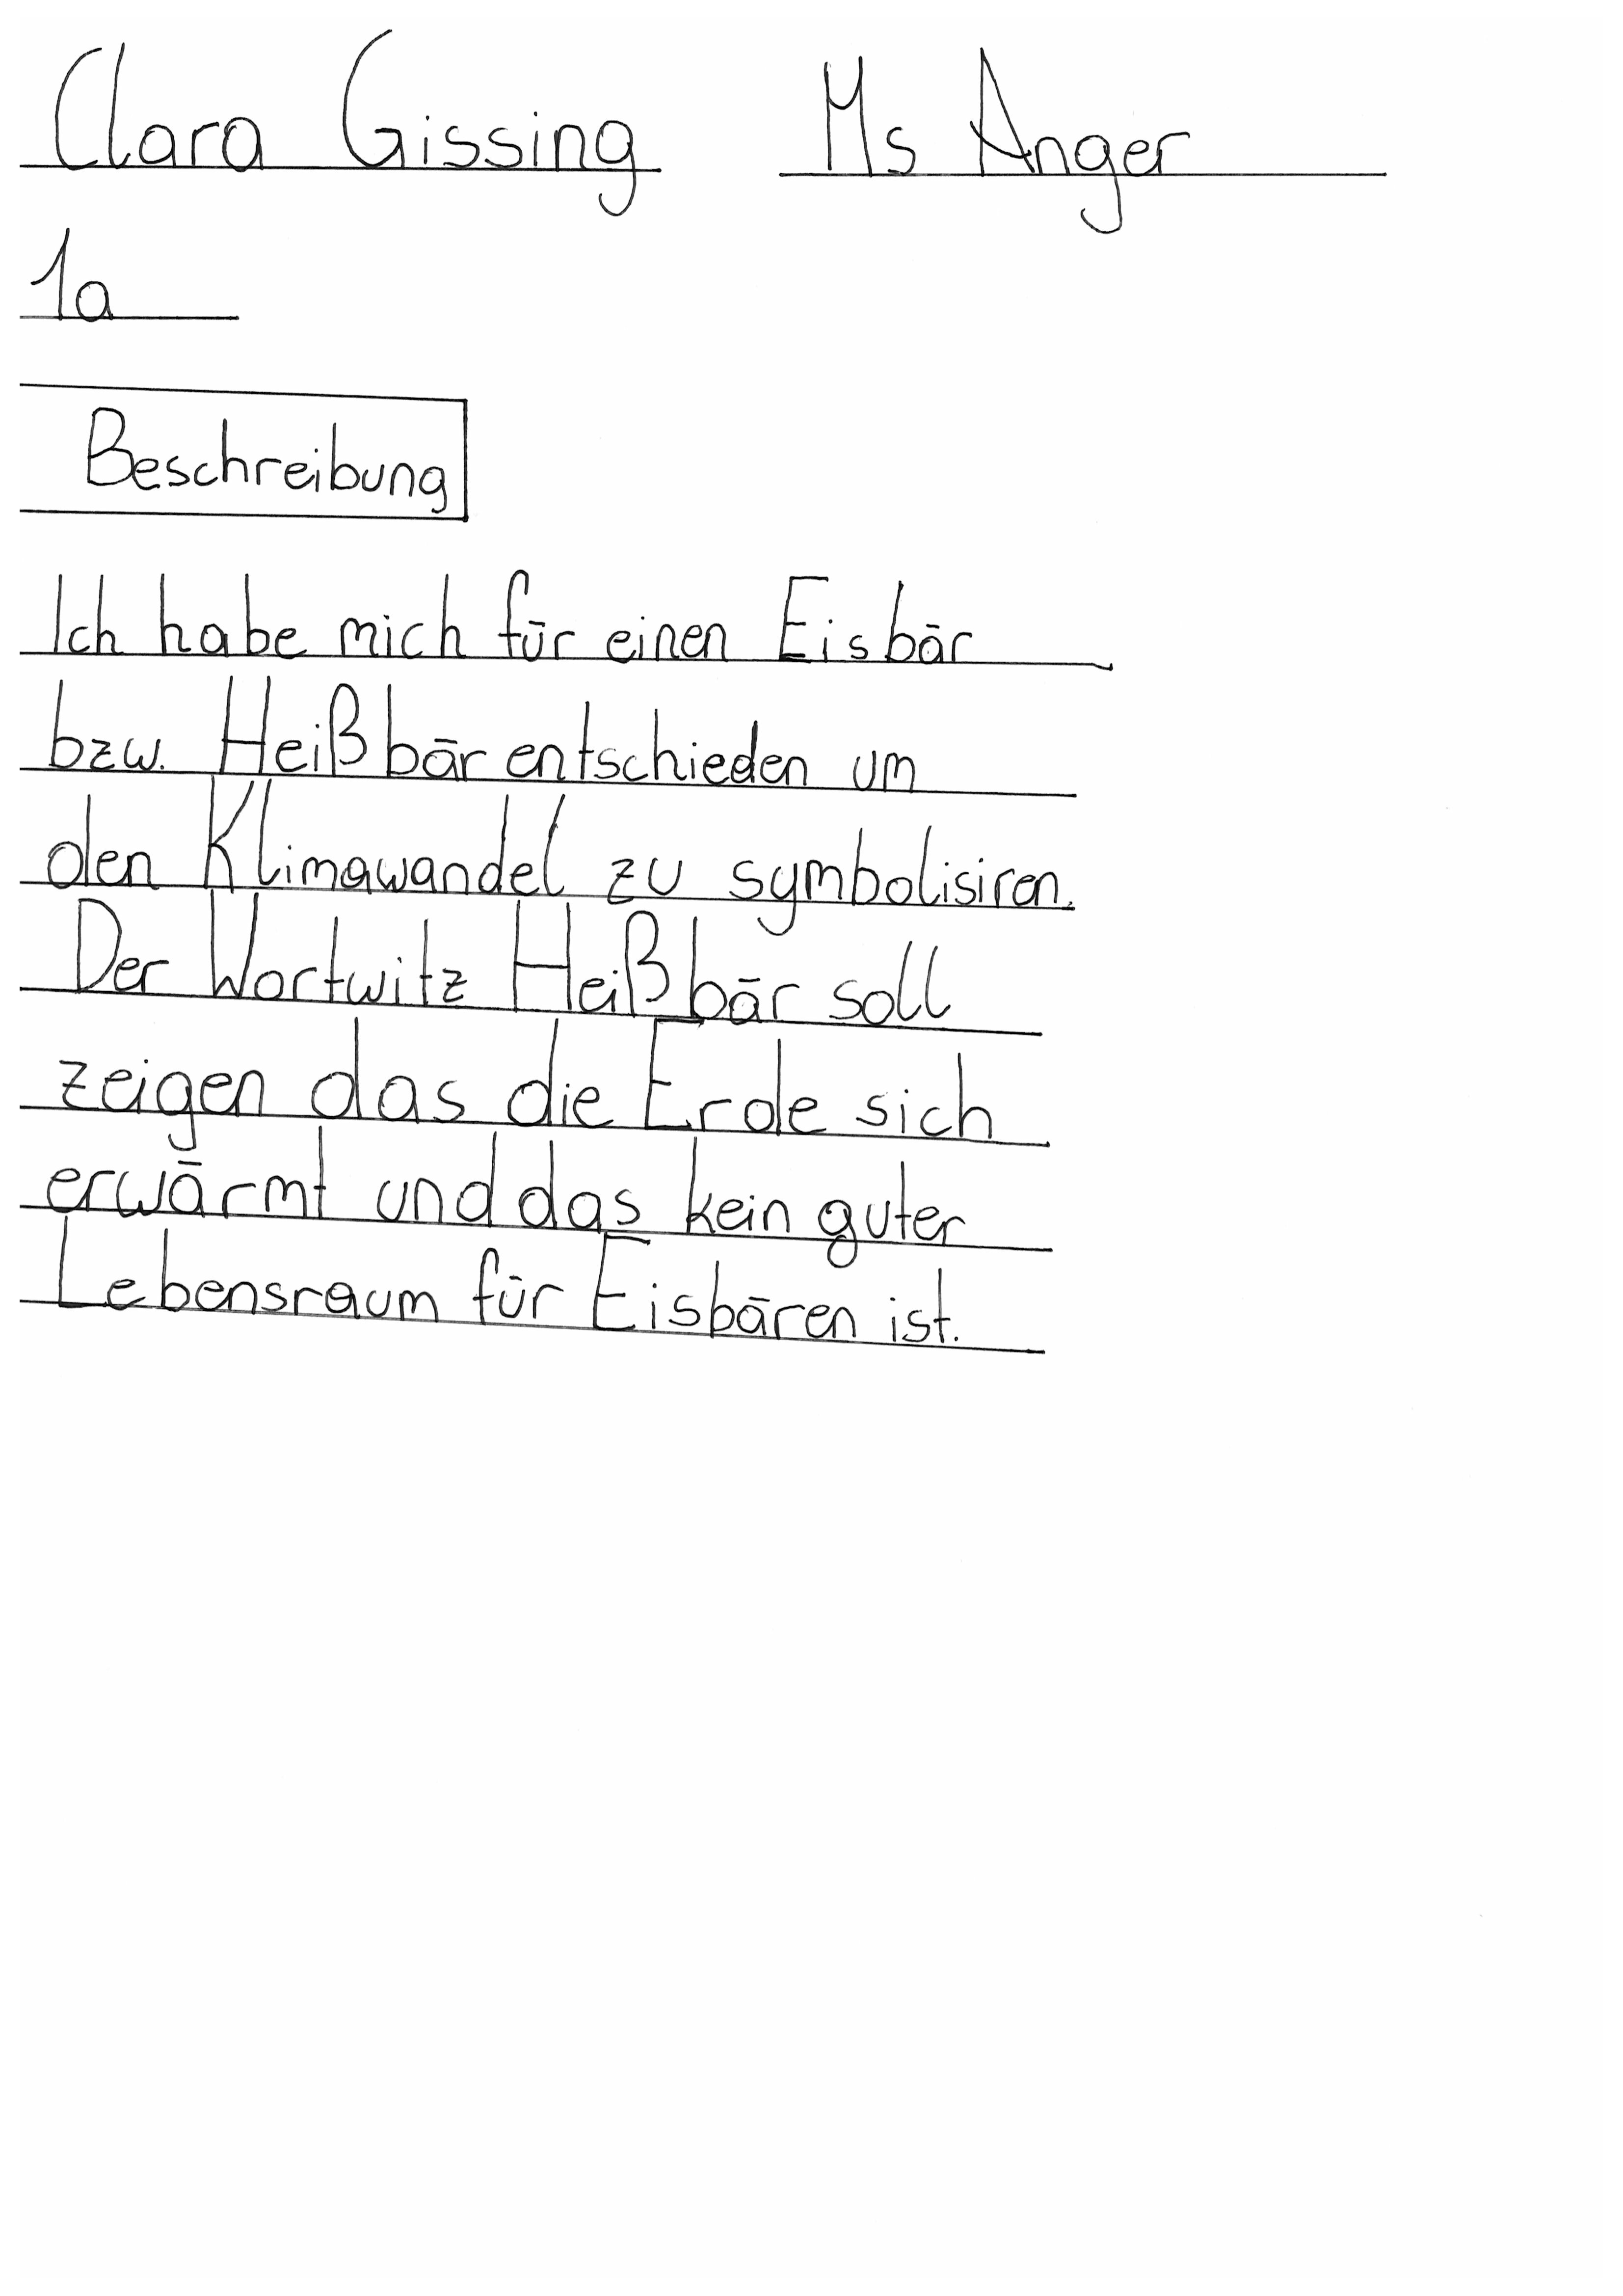 Clara Gissing Ms Anger
1a
Beschreibung
Ich habe mich für einen Eisbär
bzw. Heißbär entschieden um
den Klimawandel zu symbolisiren.
Der Wortwitz Heißbär soll
zeigen das die Erde sich
erwärmt und das kein guter
Lebensraum für Eisbären ist.